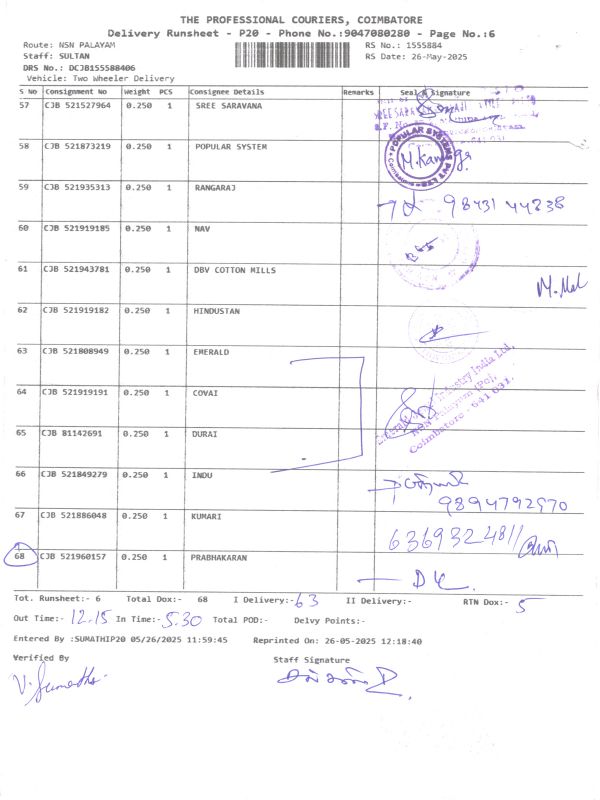 THE PROFESSIONAL COURIERS, COIMBATORE
Delivery Runsheet - P20 - Phone No.:9047080280 - Page No.:6
Route: NSN PALAYAM RS No.: 1555884
Staff: SULTAN RS Date: 26-May-2025
DRS No.: DCJB155588406
Vehicle: Two Wheeler Delivery
S No Consignment No Weight PCS Consignee Details Remarks Seal & Signature
57 CJB 521527964 0.250 1 SREE SARAVANA
58 CJB 521873219 0.250 1 POPULAR SYSTEM
POPULAR SYSTEMS PVT LTD
59 CJB 521935313 0.250 1 RANGARAJ
98431 44838
60 CJB 521919185 0.250 1 NAV
61 CJB 521943781 0.250 1 DBV COTTON MILLS
62 CJB 521919182 0.250 1 HINDUSTAN
63 CJB 521808949 0.250 1 EMERALD
Industry India Ltd,
NSN Palayam (Po),
Coimbatore - 641 031.
64 CJB 521919191 0.250 1 COVAI
65 CJB 81142691 0.250 1 DURAI
66 CJB 521849279 0.250 1 INDU
9894792570
67 CJB 521886048 0.250 1 KUMARI
6369324811
68 CJB 521960157 0.250 1 PRABHAKARAN
Tot. Runsheet:- 6 Total Dox:- 68 I Delivery:- 63 II Delivery:- RTN Dox:- 5
Out Time:- 12.15 In Time:- 5.30 Total POD:- Delvy Points:-
Entered By :SUMATHIP20 05/26/2025 11:59:45 Reprinted On: 26-05-2025 12:18:40
Verified By Staff Signature
V. Sumathi